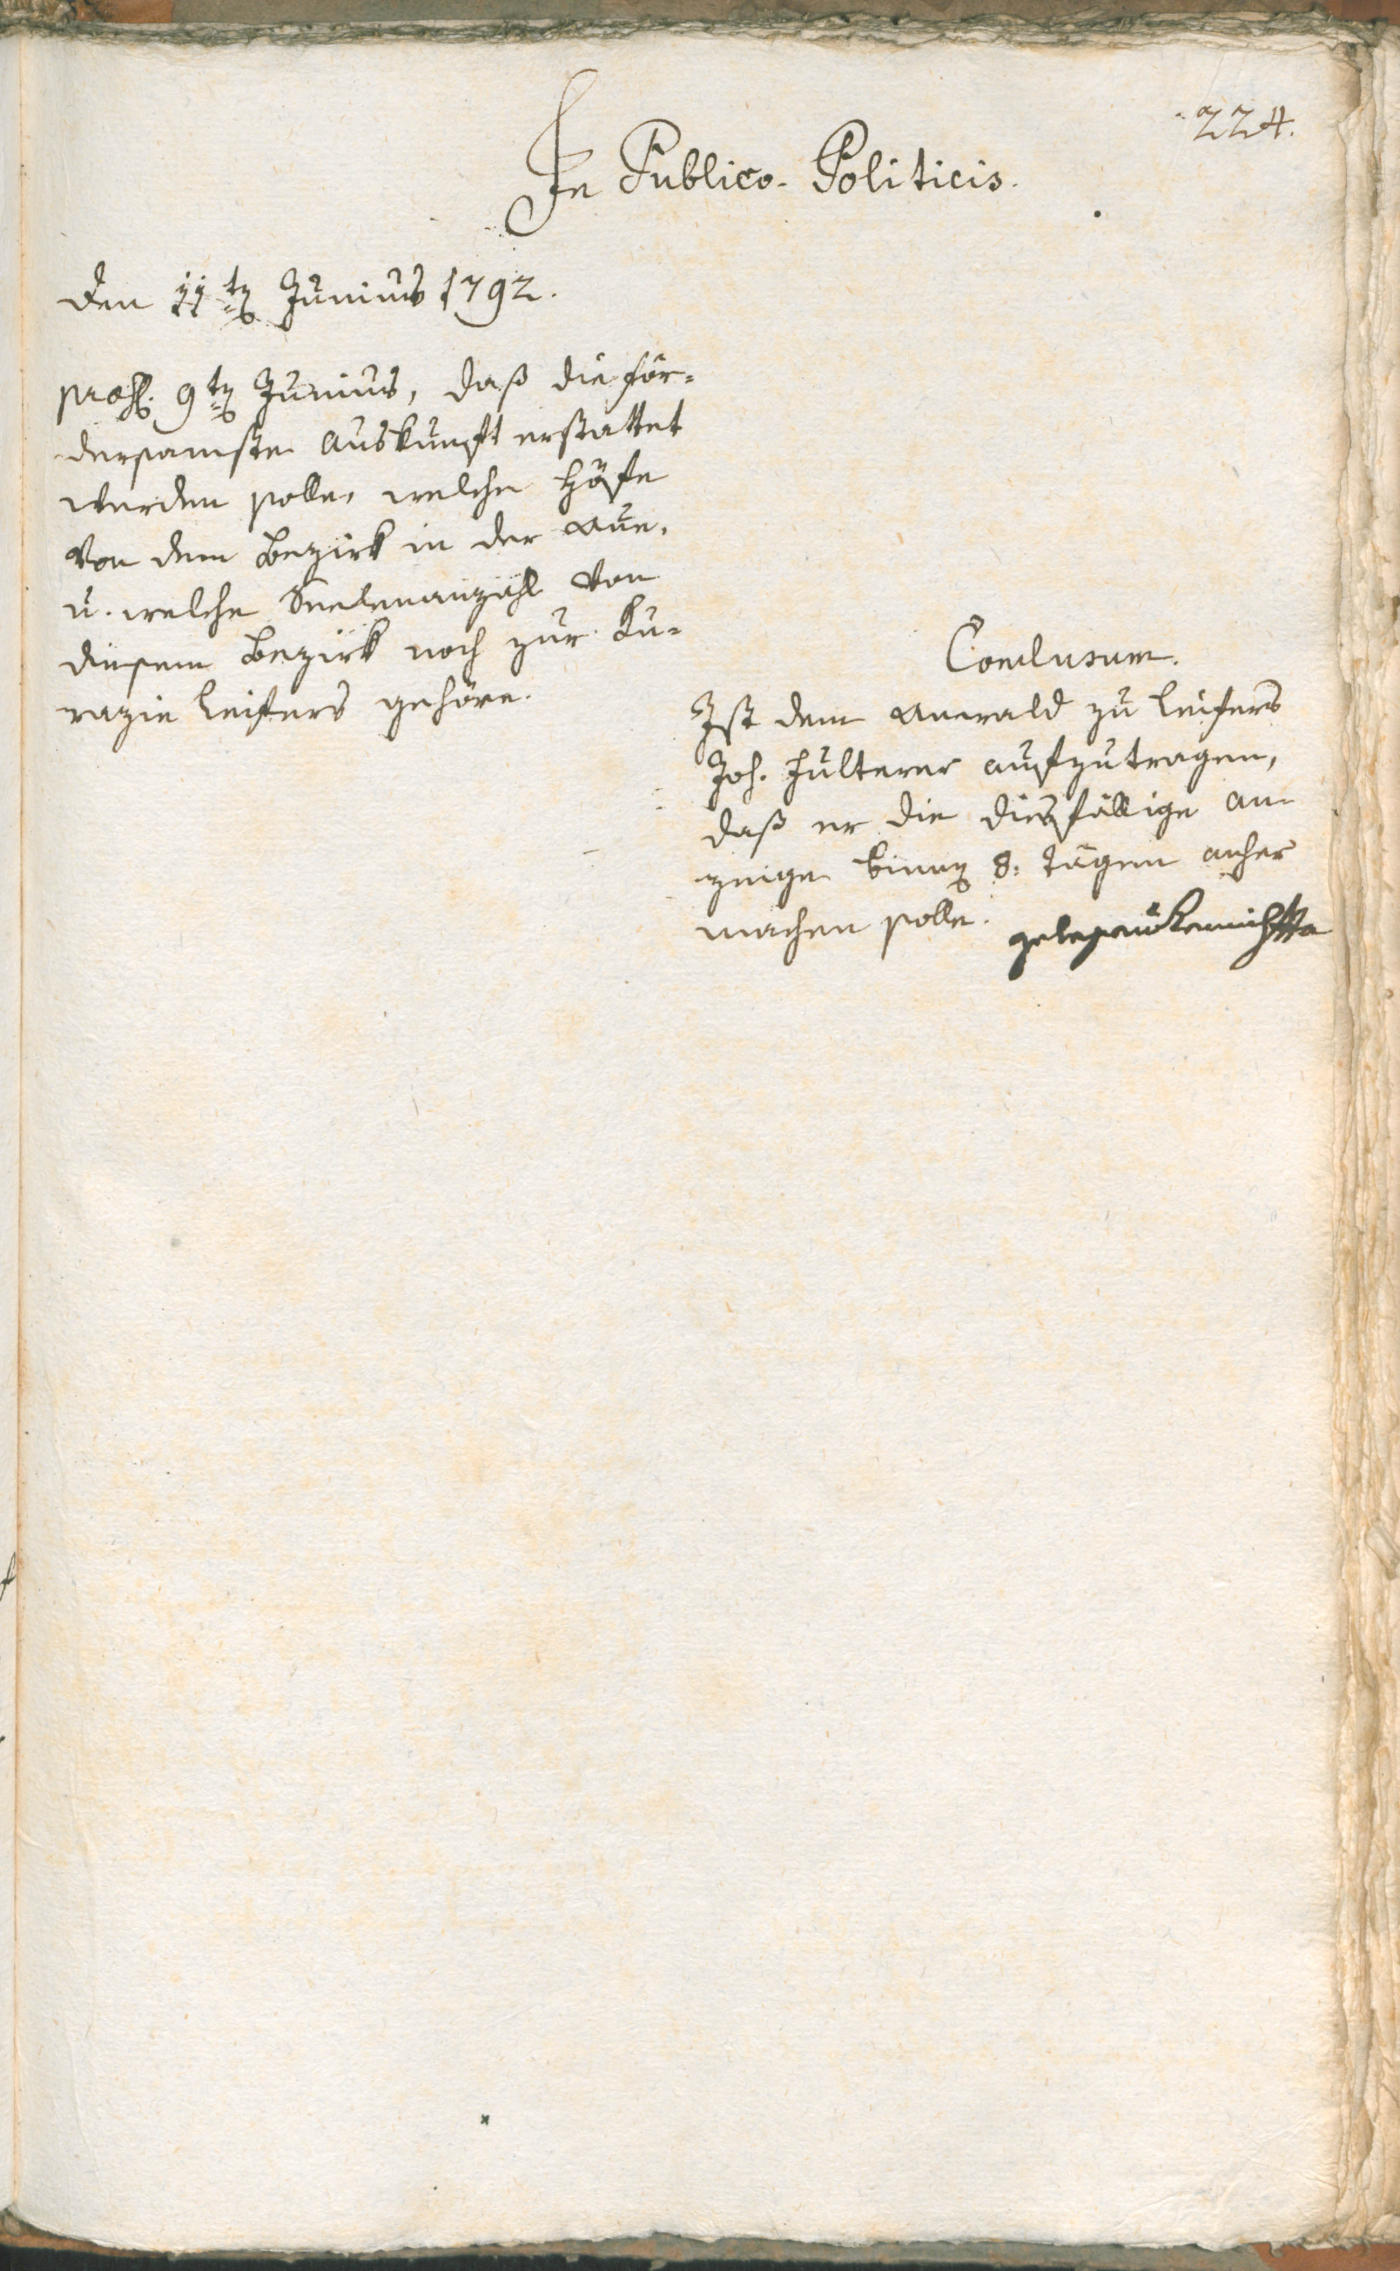 224.
In Publico-Politicis.
Den 11ten Junius 1792.
præs. 9ten Junius, daß die för-
dersamste Auskunft erstattet
werden solle, welche Höfe
von dem Bezirk in der Aue,
u. welche Seelenanzahl von
diesem Bezirk noch zur Ku-
razie Leifers gehöre.
Conclusum.
Ist dem Anwald zu Leifers
Joh. Fulterer aufzutragen,
daß er die diesfällige An-
zeige binnen 8: Tägen anher
machen solle.
gelesen